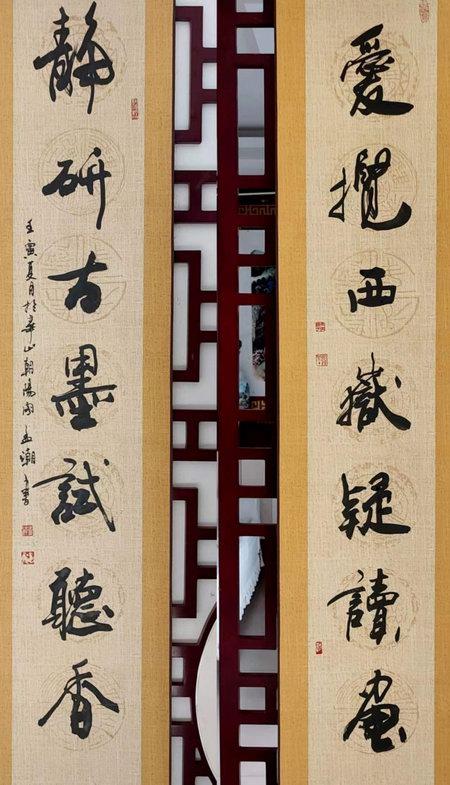 愛攬西嶽疑讀畫
靜研古墨試聽香
壬寅夏月於華山朝陽閣潮書